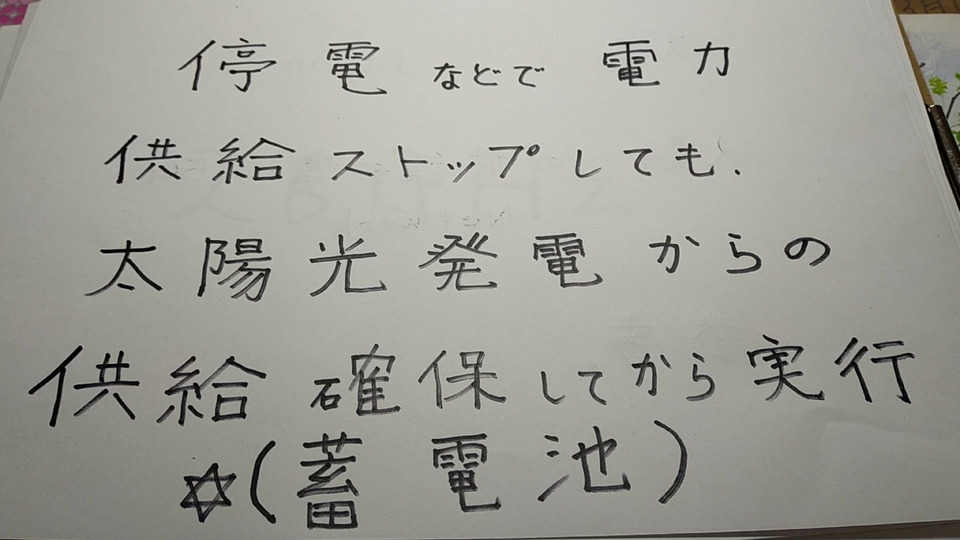 停電などで電力
供給ストップしても、
太陽光発電からの
供給確保してから実行
✡(蓄電池)